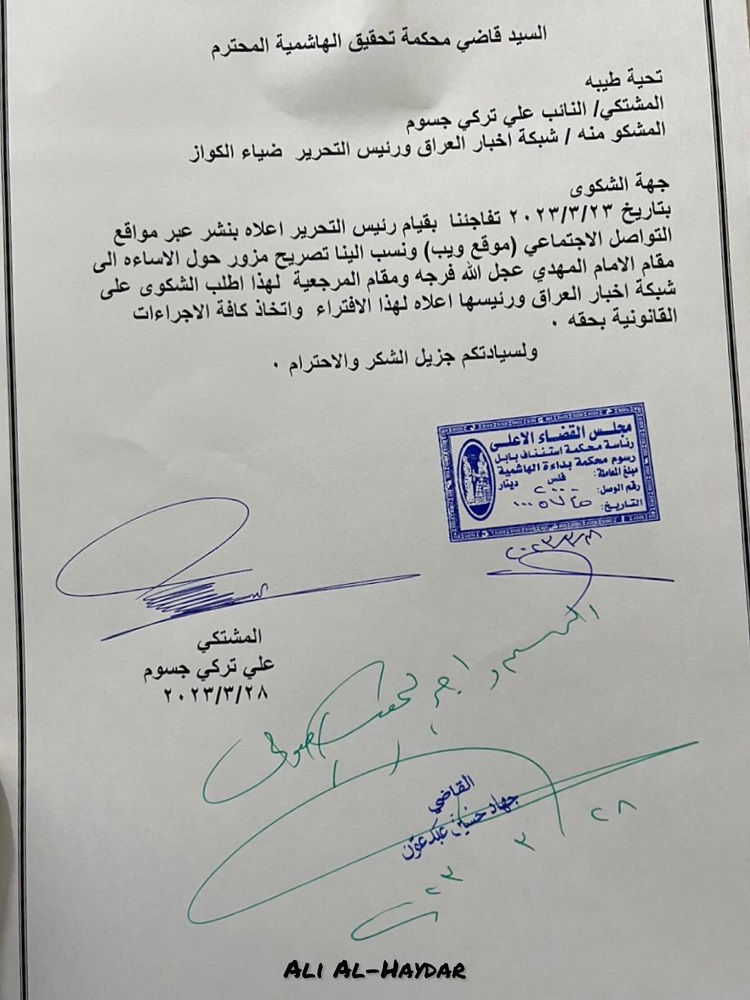 السيد قاضي محكمة تحقيق الهاشمية المحترم
تحية طيبه
المشتكي/ النائب علي تركي جسوم
المشكو منه / شبكة اخبار العراق ورئيس التحرير ضياء الكواز
جهة الشكوى
بتاريخ ٢٠٢٣/٣/٢٣ تفاجئنا بقيام رئيس التحرير اعلاه بنشر عبر مواقع
التواصل الاجتماعي (موقع ويب) ونسب الينا تصريح مزور حول الاساءه الى
مقام الامام المهدي عجل الله فرجه ومقام المرجعية لهذا اطلب الشكوى على
شبكة اخبار العراق ورئيسها اعلاه لهذا الافتراء واتخاذ كافة الاجراءات
القانونية بحقه .
ولسيادتكم جزيل الشكر والاحترام .
مجلس القضاء الاعلى
رئاسة محكمة استئناف بابل
رسوم محكمة بداءة الهاشمية
مبلغ المعاملة: فلس دينار
رقم الوصل: ٢٠٠٠
التاريخ:
٢٠٢٣/٣/٢٨
المشتكي
علي تركي جسوم
٢٠٢٣/٣/٢٨
القاضي
جهاد حسين عبد عون
٢٨
٣
٢٠٢٣
Ali Al-Haydar